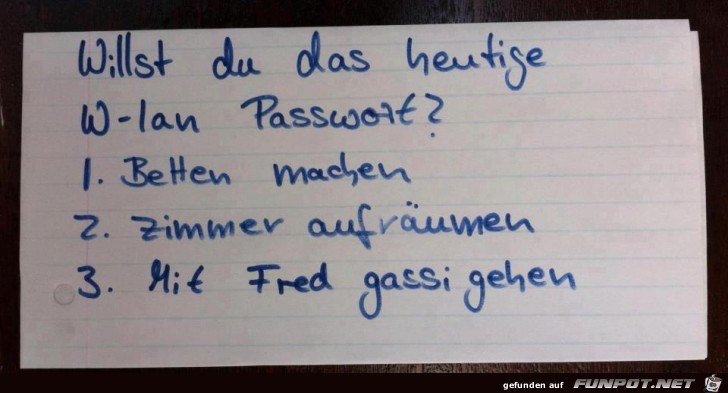 Willst du das heutige
W-lan Passwort?
1. Betten machen
2. Zimmer aufräumen
3. Mit Fred gassi gehen
gefunden auf FUNPOT.NET